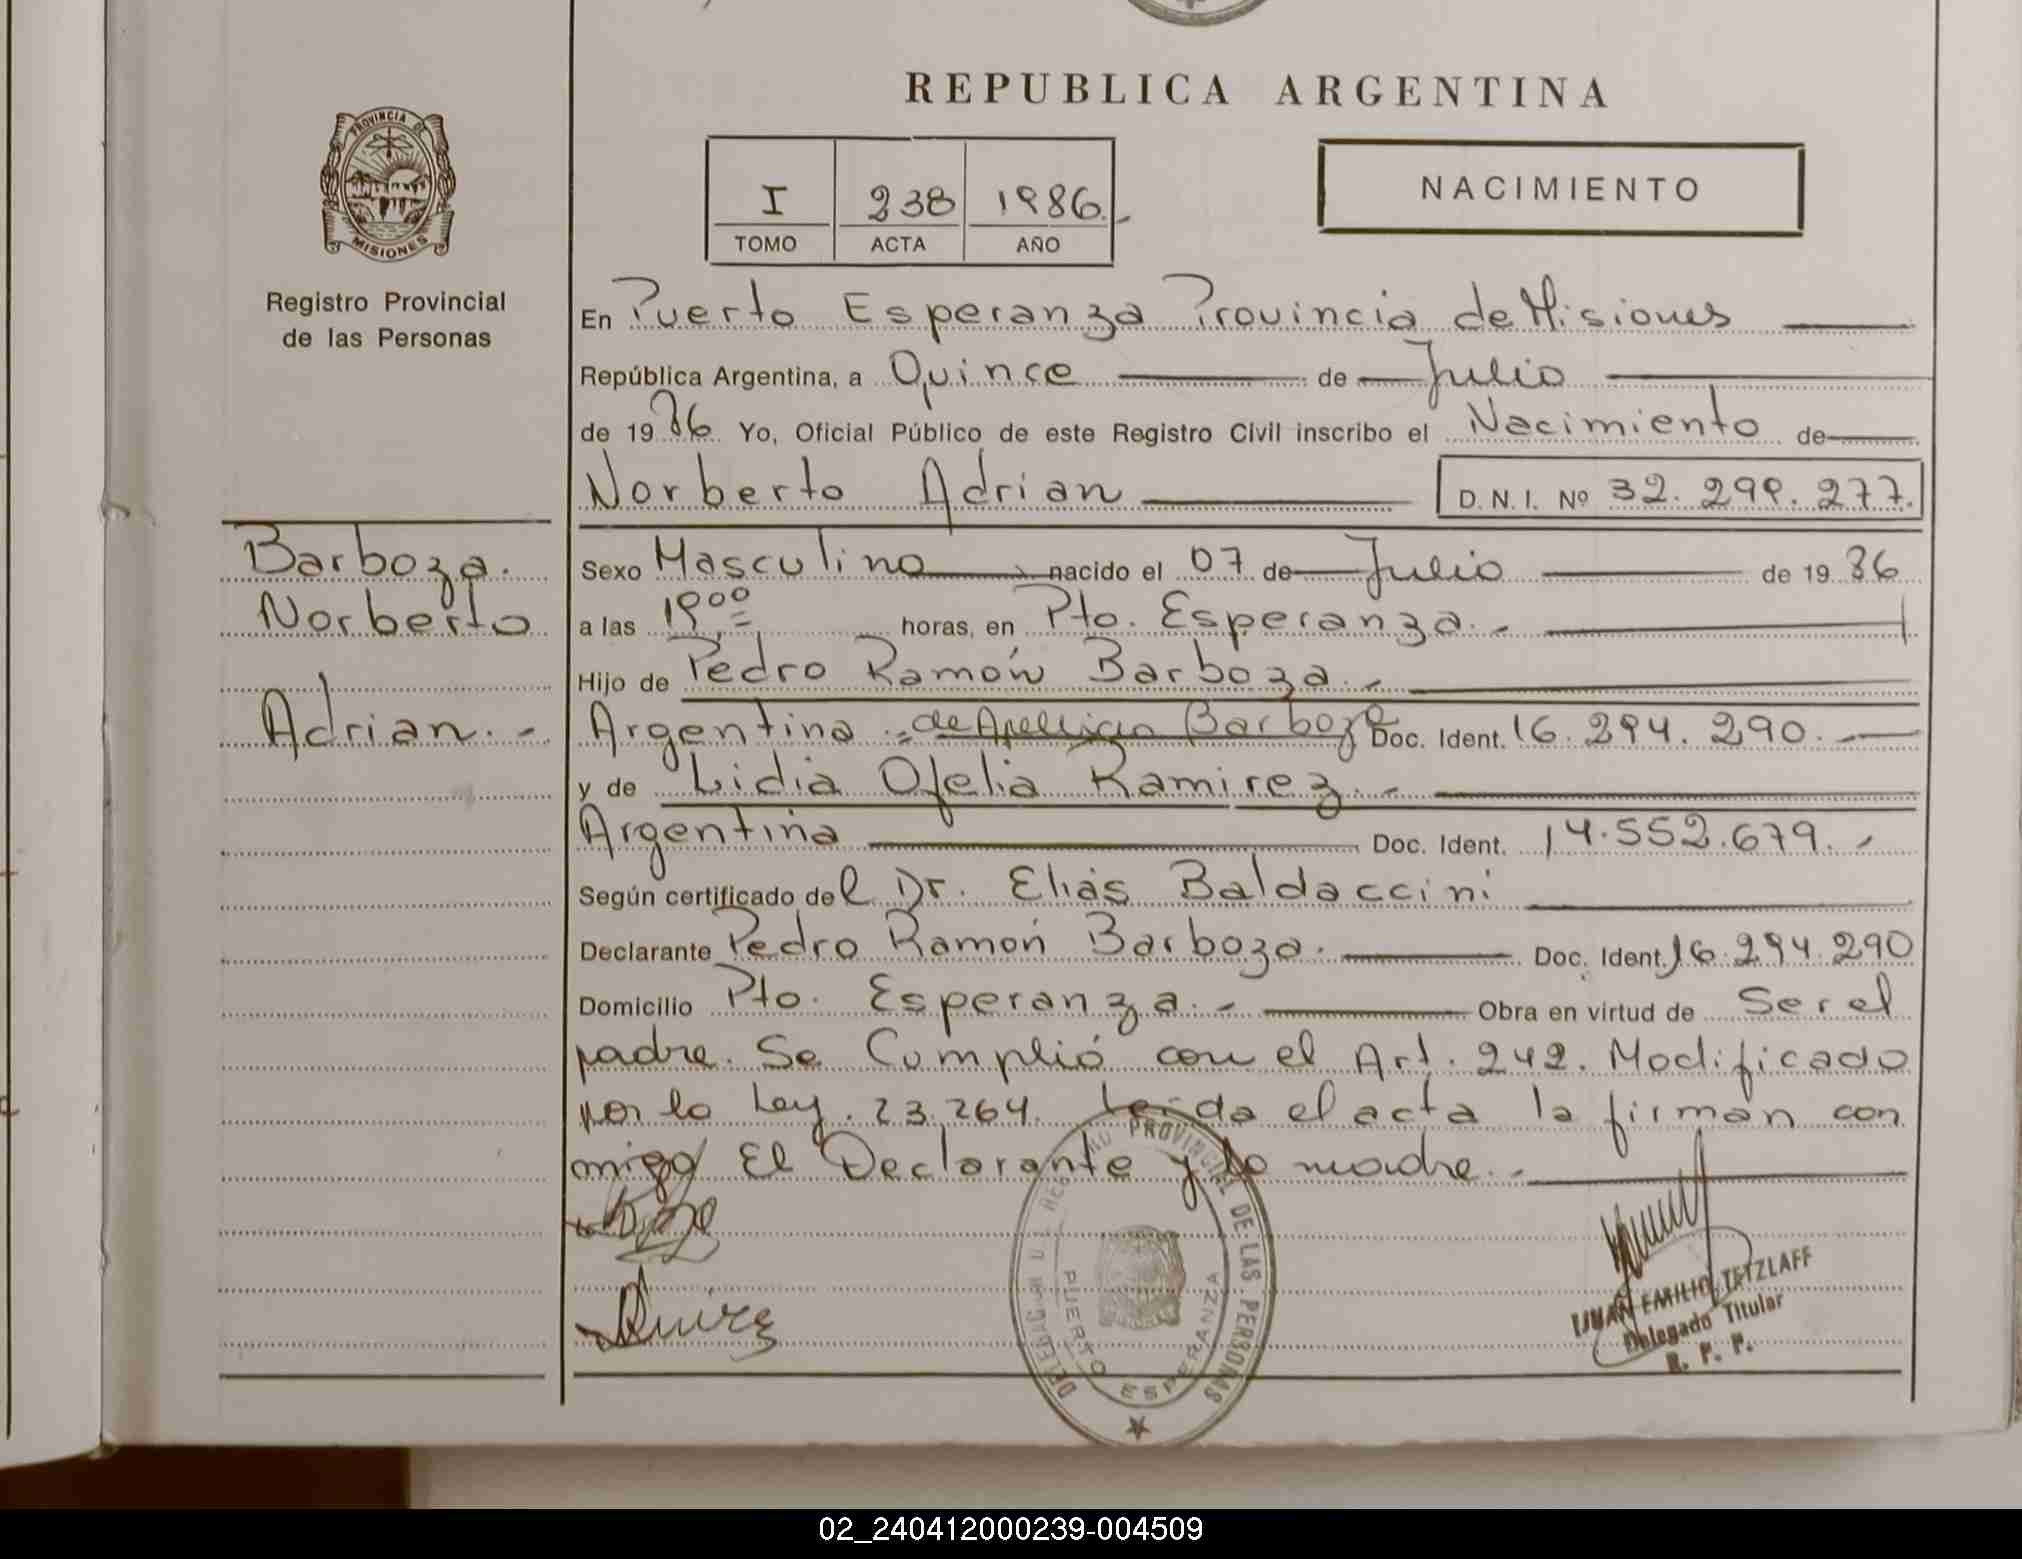 REPUBLICA ARGENTINA
PROVINCIA DE
MISIONES
Registro Provincial
de las Personas
I 238 1986.-
TOMO ACTA AÑO
NACIMIENTO
En Puerto Esperanza Provincia de Misiones
República Argentina, a Quince de Julio
de 1986 Yo, Oficial Público de este Registro Civil inscribo el Nacimiento de
Norberto Adrian D.N.I. Nº 32.299.277.
Barboza.
Norberto
Adrian.-
Sexo Masculino nacido el 07 de Julio de 1986
a las 19 00 horas, en Pto. Esperanza.-
Hijo de Pedro Ramón Barboza.-
Argentina.= de Apellido Barboza Doc. Ident. 16.294.290.
y de Lidia Ofelia Ramirez.-
Argentina Doc. Ident. 14.552.679.-
Según certificado del Dr. Elias Baldaccini
Declarante Pedro Ramón Barboza. Doc. Ident. 16.294.290
Domicilio Pto. Esperanza.- Obra en virtud de Ser el
padre. Se Cumplió con el Art. 242. Modificado
por la Ley. 23.264. Leida el acta la firman con
migo El Declarante y la madre.-
DELEGACION DEL REGISTRO PROVINCIAL DE LAS PERSONAS
PUERTO ESPERANZA
EMILIO TETZLAFF
Delegado Titular
R. P. P.
02_240412000239-004509